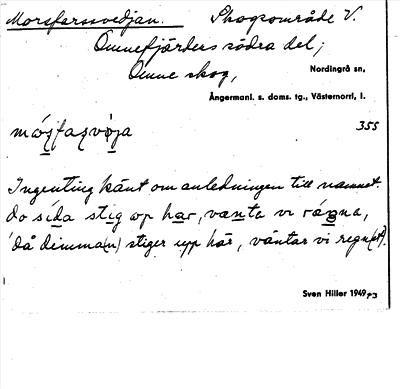 Morsfarssvedjan. Skogsområde V.
Omnefjärdens södra del;
Omne skog, Nordingrå sn,
Ångermanl. s. doms. tg., Västernorrl. l.
355
Ingenting känt om anledningen till namnet.
do sida stig op har, vanta vi
'då dimma(n) stiger upp här, väntar vi regn(et)'.
Sven Hiller 1949